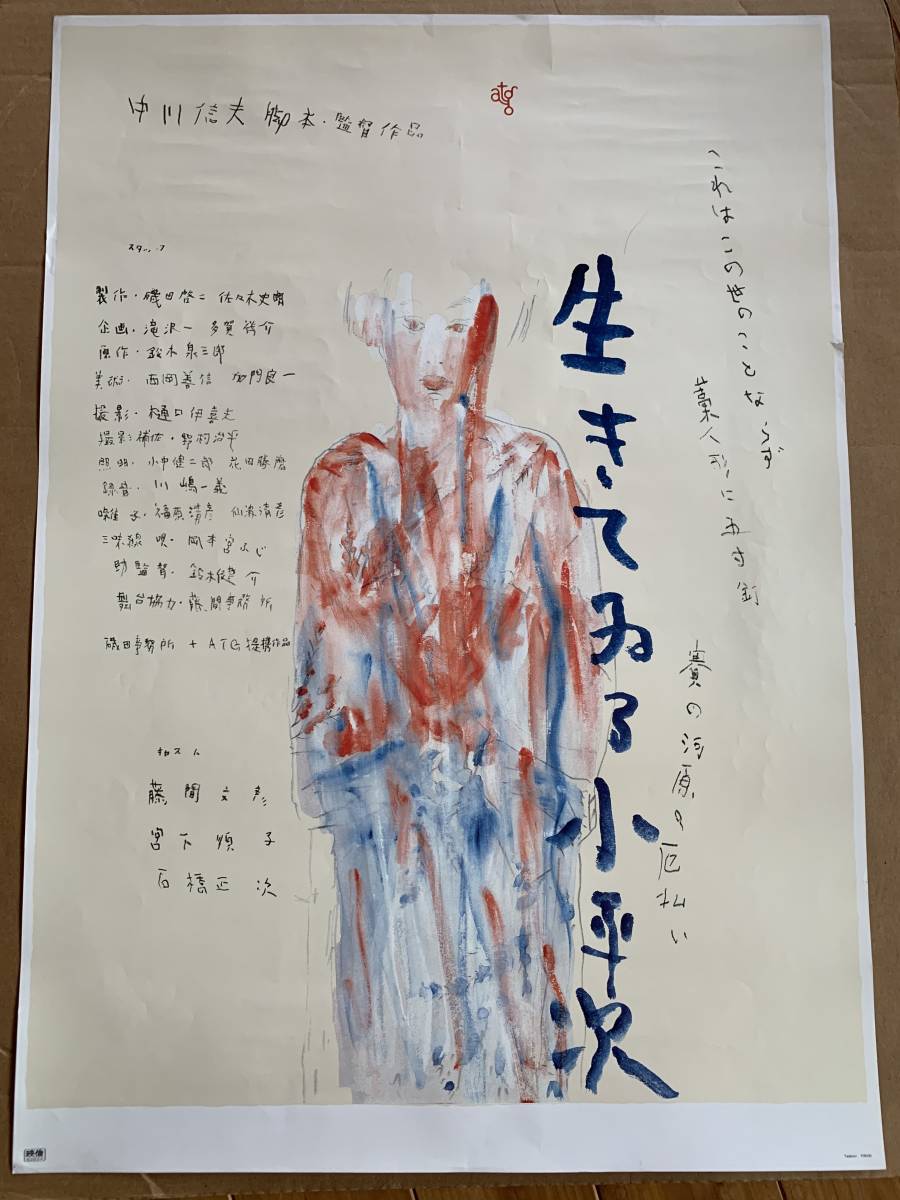 atg
中川信夫 脚本・監督作品
これはこの世のことならず
藁人形に五寸釘
賽の河原の厄払い
生きてゐる小平次
スタッフ
製作・磯田啓二 佐々木史朗
企画・滝沢一 多賀祥介
原作・鈴木泉三郎
美術・西岡善信 加門良一
撮影・樋口伊喜夫
撮影補佐・野村治平
照明・小中健二郎 花田勝麿
録音・川嶋一義
囃子・福原鶴彦 仙波清彦
三味線 唄・岡本宮ふじ
助監督・鈴木健介
舞台協力・藤間事務所
磯田事務所 + ATG提携作品
キャスト
藤間文彦
宮下順子
石橋正次
映倫